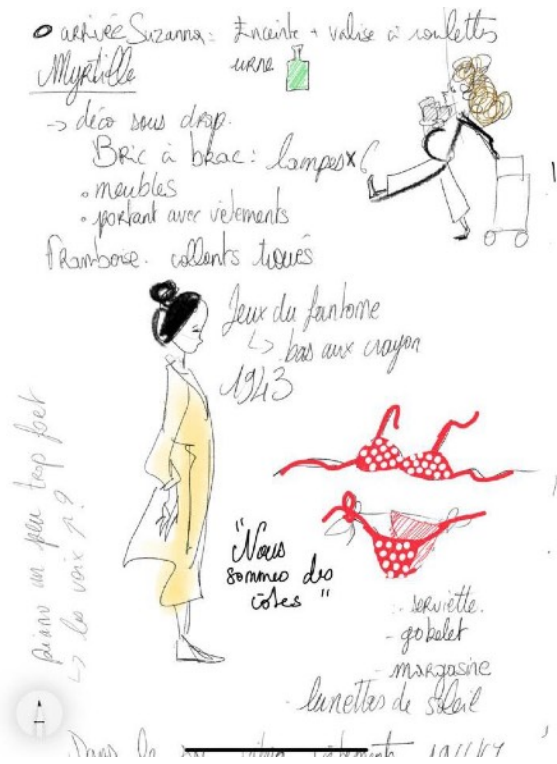 arrivée Suzanna: Enceinte + valise à roulettes
Myrtille urne
-> déco sous drap.
Bric à brac: lampes x 6
• meubles
• portant avec vêtements
Framboise. collants troués
Jeux du fantome
↳ bas aux crayon
1943
piano un peu trop fort
↳ les voix
"Nous
sommes des
côtes"
- serviette.
- gobelet
- margasine
- lunettes de soleil
Dans le